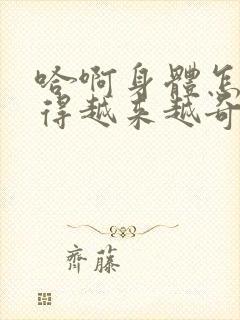 哈啊身體怎
得越来越奇
齊藤